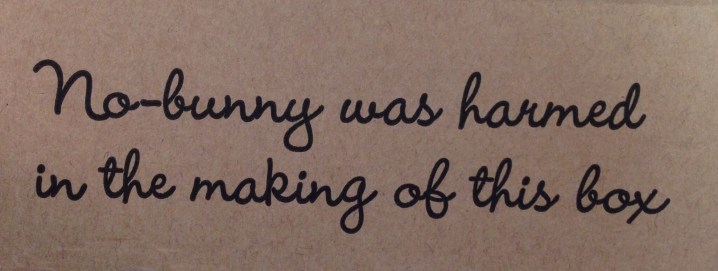 No-bunny was harmed
in the making of this box